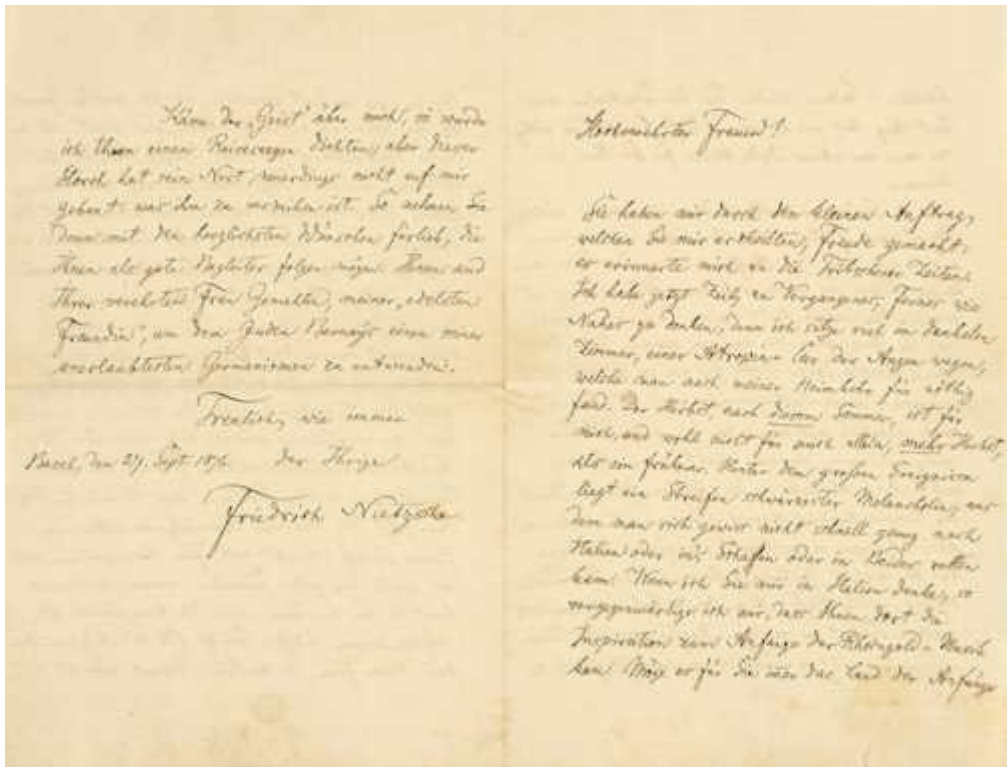 Käme der „Geist“ über mich, so würde
ich Ihnen einen Reisesegen dichten; aber dieser
Storch hat sein Nest neuerdings nicht auf mir
gebaut: was ihm zu verzeihen ist. So nehmen Sie
denn mit den herzlichsten Wünschen fürlieb, die
Ihnen als gute Begleiter folgen mögen: Ihnen und
Ihrer verehrten Frau Gemahlin, meiner „edelsten
Freundin“, um dem Juden Bernays einen seiner
unerlaubtesten Germanismen zu entwenden.
Treulich, wie immer
der Ihrige
Basel, den 27. Sept. 1876.
Friedrich Nietzsche
Hochverehrter Freund!
Sie haben mir durch den kleinen Auftrag,
welchen Sie mir ertheilten, Freude gemacht:
er erinnerte mich an die Tribschener Zeiten.
Ich habe jetzt Zeit, an Vergangenes, Fernes wie
Nahes zu denken, denn ich sitze viel im dunkelen
Zimmer, einer Atropin-Cur der Augen wegen,
welche man nach meiner Heimkehr für nöthig
fand. Der Herbst nach diesem Sommer, ist für
mich, und wohl nicht für mich allein, mehr Herbst,
als ein früherer. Hinter dem großen Ereignisse
liegt ein Streifen schwärzester Melancholie, aus
dem man sich gewiss nicht schnell genug nach
Italien oder in's Schaffen oder in Beides retten
kann. Wenn ich Sie mir in Italien denke, so
vergegenwärtige ich mir, dass Ihnen dort die
Inspiration zum Anfange der Rheingold-Musik
kam. Möge es für Sie immer das Land der Anfänge